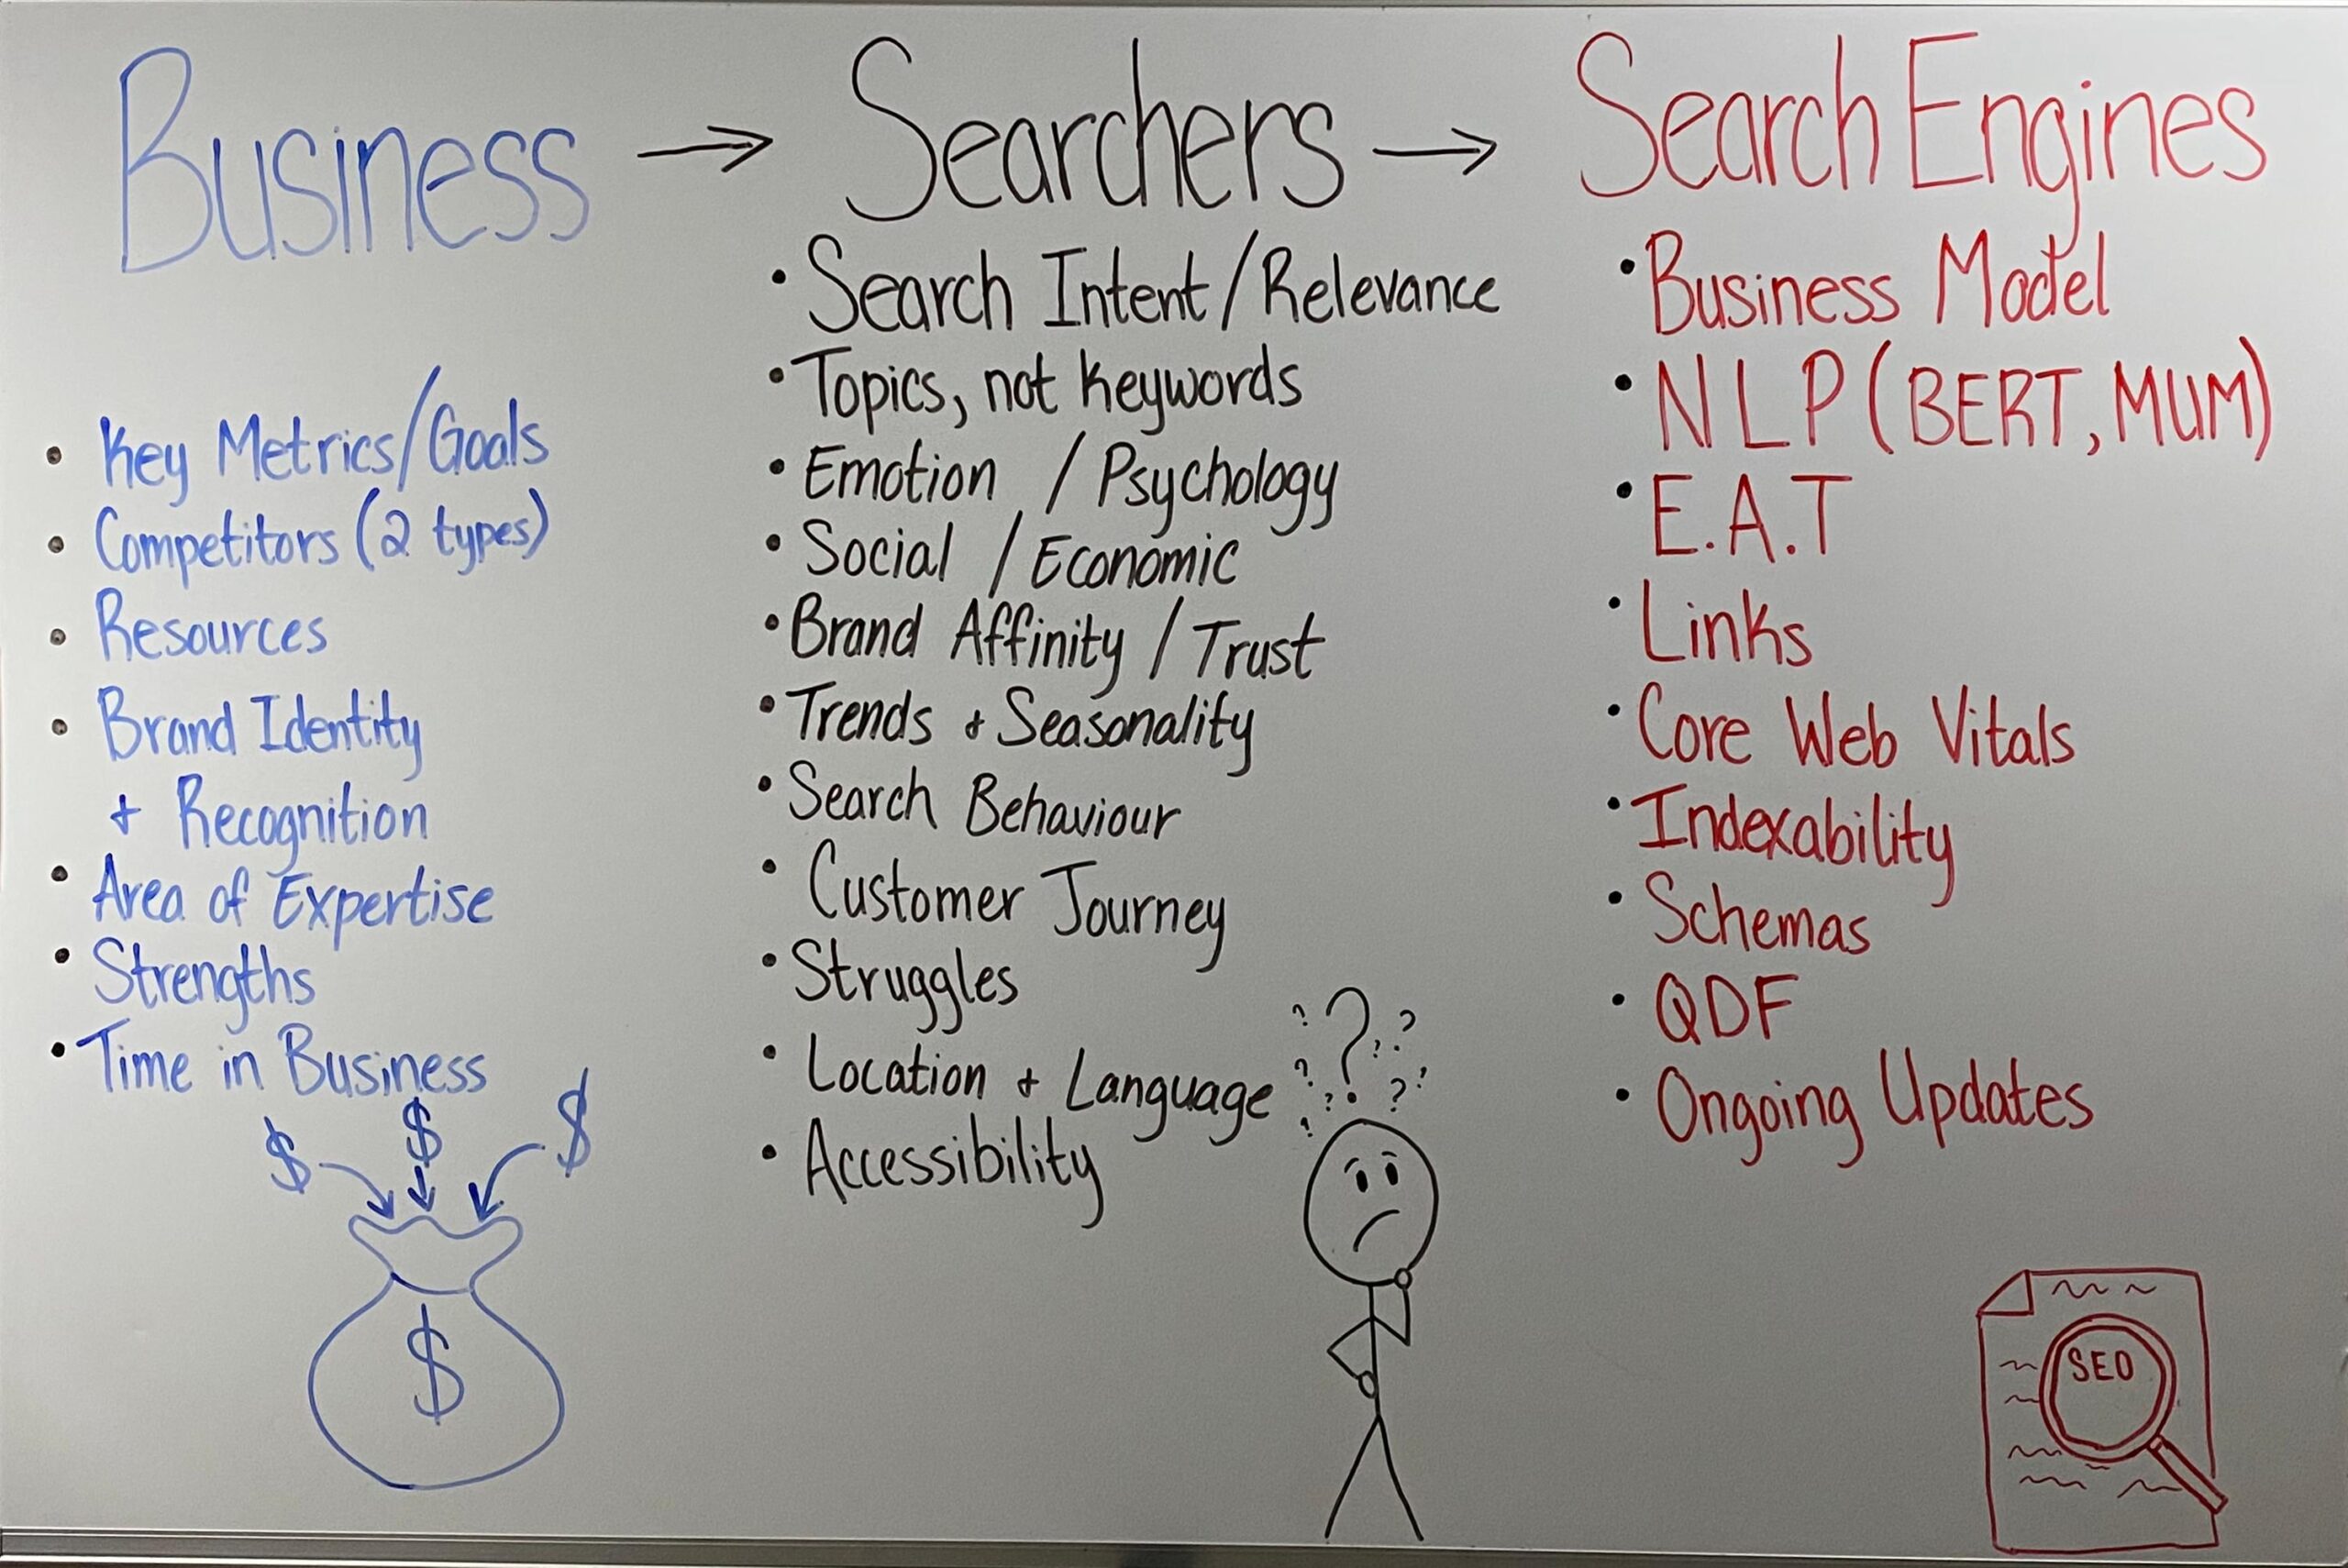 Business → Searchers → Search Engines
• Key Metrics/Goals
• Competitors (2 types)
• Resources
• Brand Identity
+ Recognition
• Area of Expertise
• Strengths
• Time in Business
$ $ $
$
• Search Intent/Relevance
• Topics, not Keywords
• Emotion / Psychology
• Social / Economic
• Brand Affinity / Trust
• Trends + Seasonality
• Search Behaviour
• Customer Journey
• Struggles
• Location + Language
• Accessibility
? ? ? ? ? ? ? ? ? ?
• Business Model
• NLP (BERT, MUM)
• E.A.T
• Links
• Core Web Vitals
• Indexability
• Schemas
• QDF
• Ongoing Updates
SEO